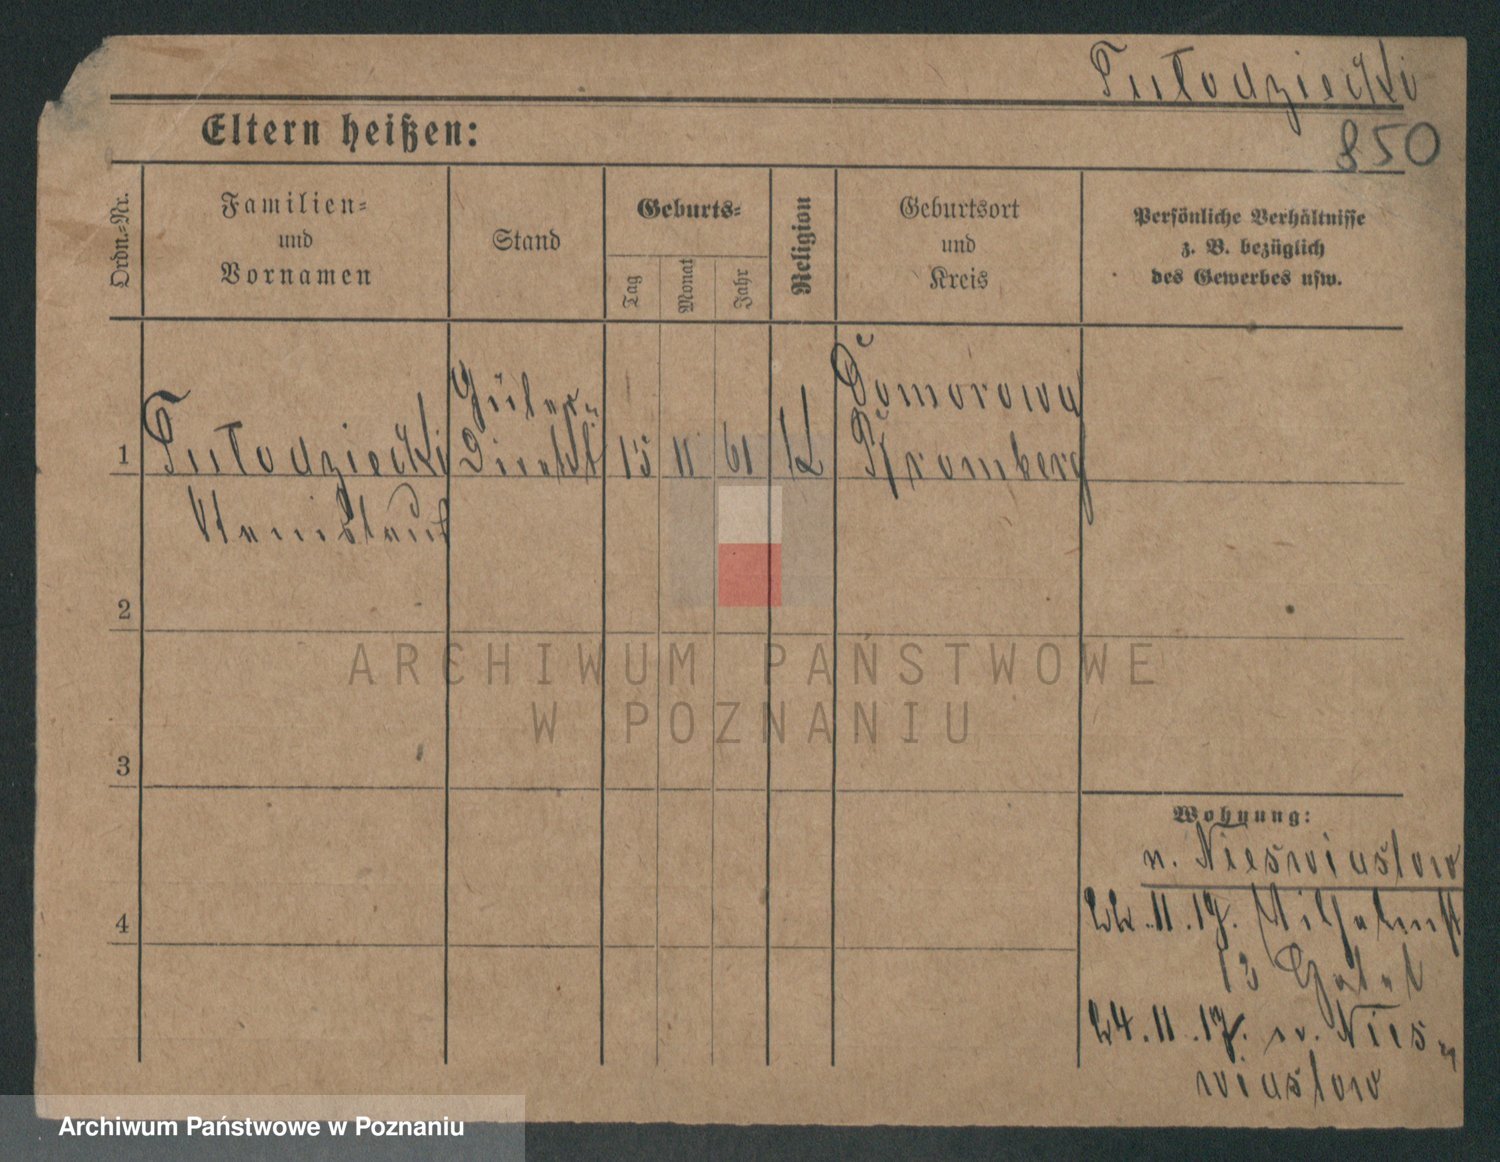 Tułodziecki
850
Eltern heißen:
Ordn.-Nr.
Familien-
und
Vornamen
Stand
Geburts-
Tag
Monat
Jahr
Religion
Geburtsort
und
Kreis
Persönliche Verhältnisse
z. B. bezüglich
des Gewerbes usw.
1
Tułodziecki
Stanislaus
Güter-
Direkt
15
11
61
K
Domorowo
Bromberg
2
3
4
Wohnung:
n. Nieswiastow
22.11.17. Wilhelmst
12 Hotel
24.11.17. n. Nies-
wiastow
ARCHIWUM PAŃSTWOWE
W POZNANIU
Archiwum Państwowe w Poznaniu